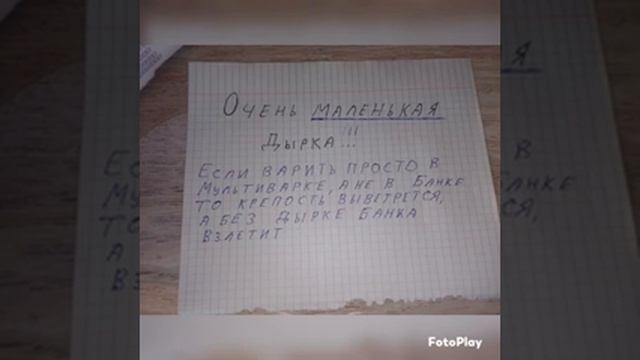 Очень маленькая
дырка!!!
Если варить просто в
мультиварке, а не в банке
то крепость выветрется,
а без дырке банка
взлетит
FotoPlay